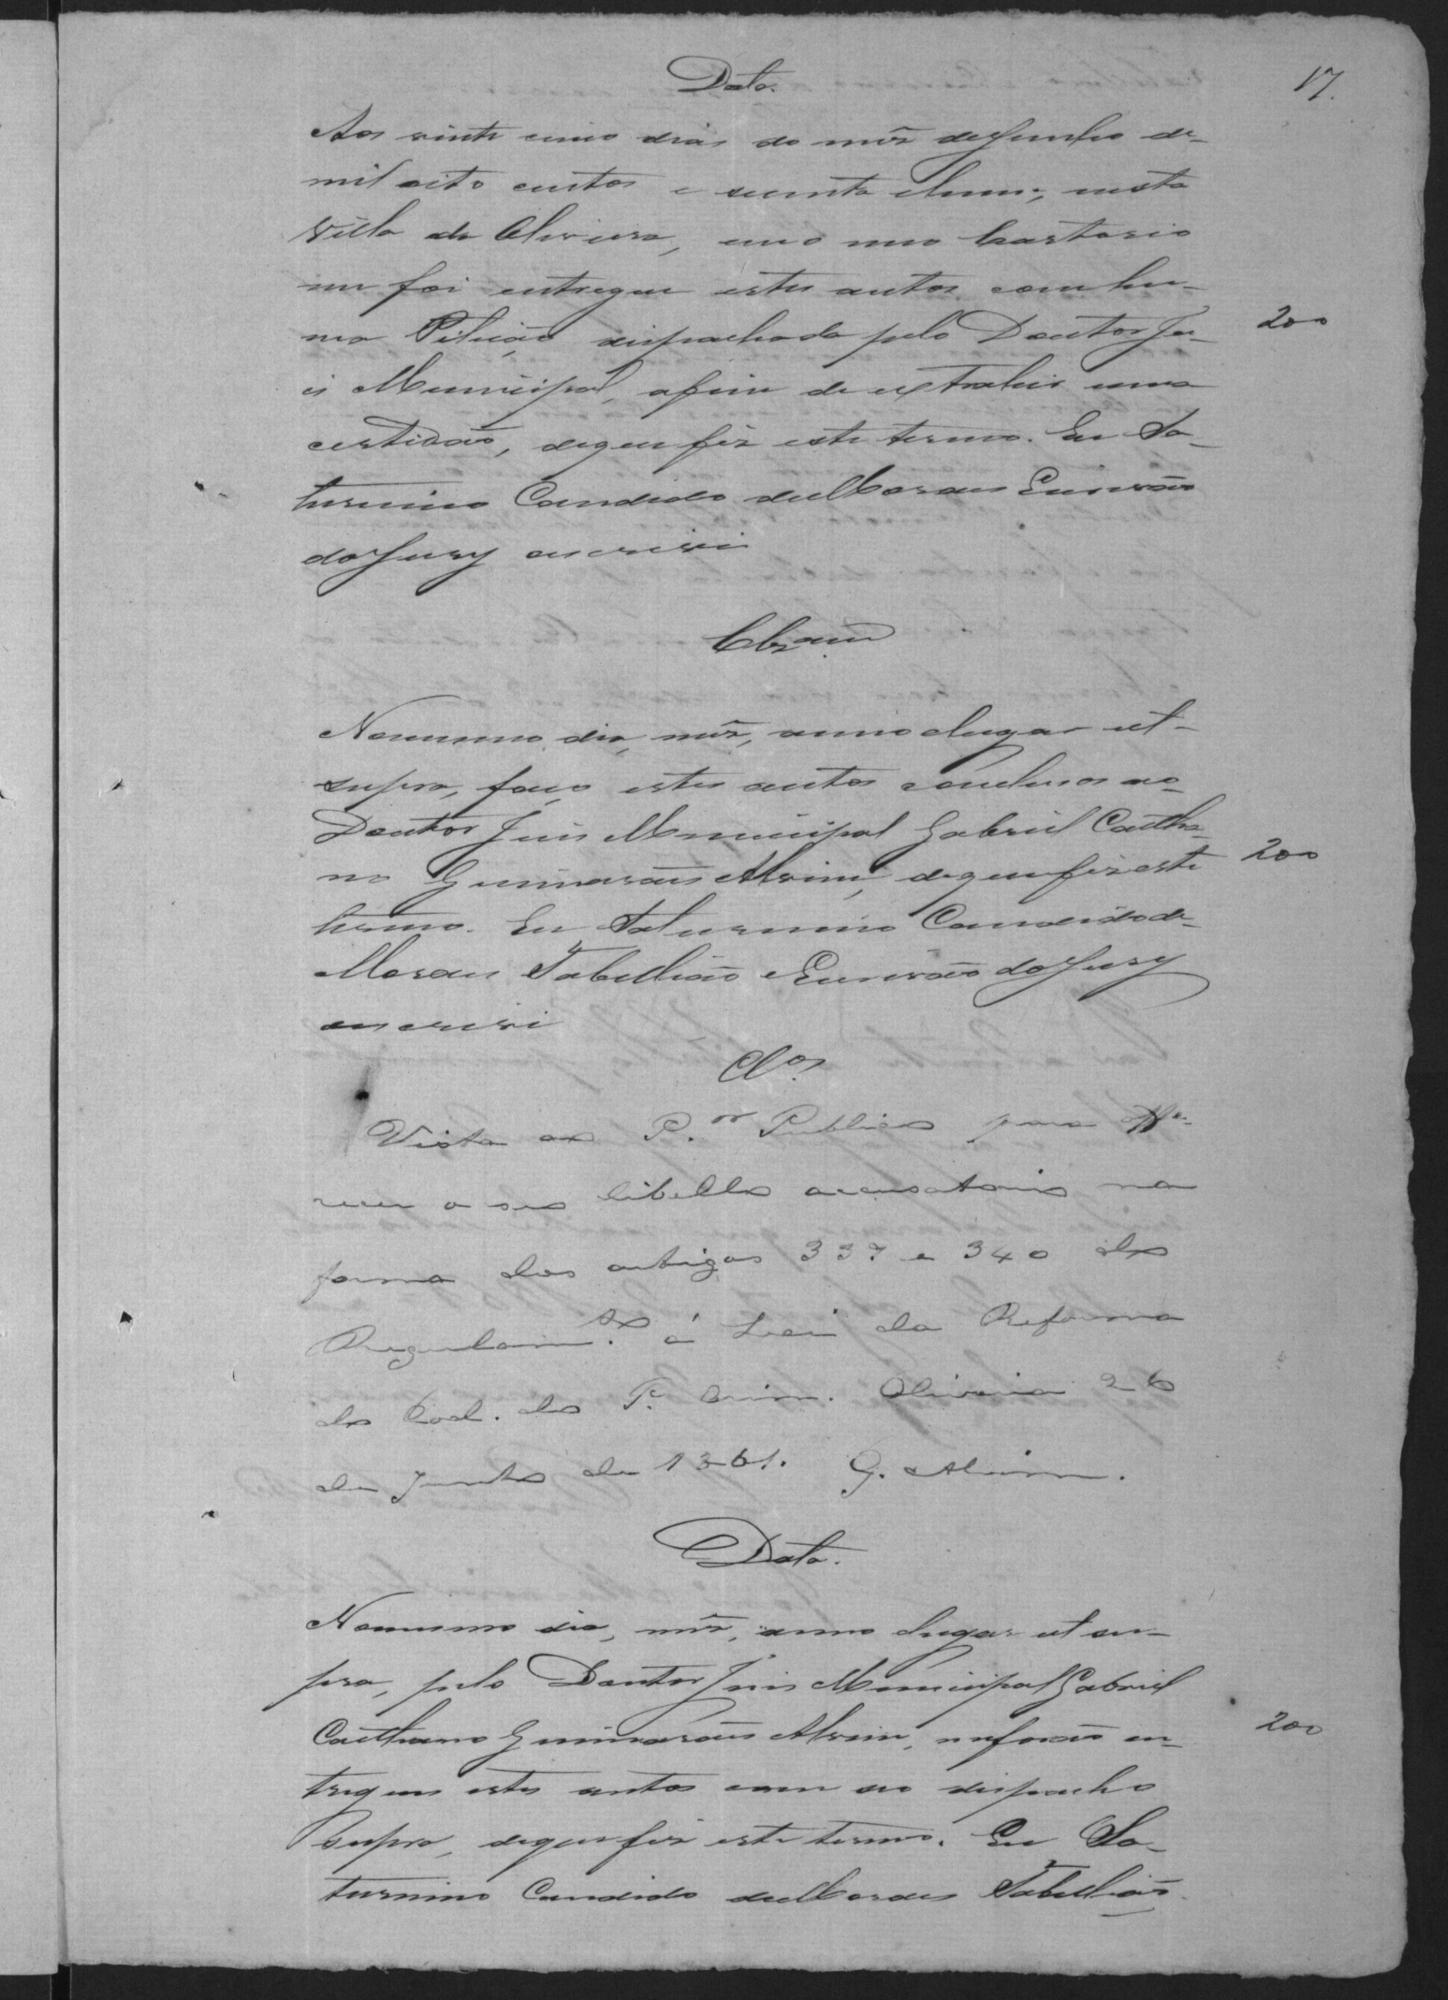 17.
Data.
Aos vinte cinco dias do mês de Junho de
mil oito centos e secenta e hum, nesta
Villa de Oliveira, em o meo Cartorio
me foi entregue estes autos com hu-
ma Petição dispachada pelo Doutor Ju-
200
is Municipal, afim de extrahir uma
certidão, de que fiz este termo. Eu Sa-
turnino Candido de Moraes Escrivão
do Jury escrevi
Clzam
No mesmo dia, mês, anno e lugar ut-
supra, faço estes autos concluzos ao
Doutor Juis Municipal Gabriel Caetha-
no Guimarães Alvim, de que fiz este
200
termo. Eu Saturnino Candido de
Moraes Tabellião e Escrivão do Jury
escrevi
Clos
Vista ao P.or Publico para offe-
recer o seo libello accusatorio na
forma dos artigos 337 e 340 do
Regulam.to á Lei da Reforma
do Cod. do P. Crim. Oliveira 26
de Junho de 1861. G. Alvim.
Data.
No mesmo dia, mês, anno e lugar ut su-
pra, pelo Doutor Juis Municipal Gabriel
Caethano Guimarães Alvim, me forão en-
200
tregues estes autos com seo dispacho
supra, de que fiz este termo. Eu Sa-
turnino Candido de Moraes Tabellião